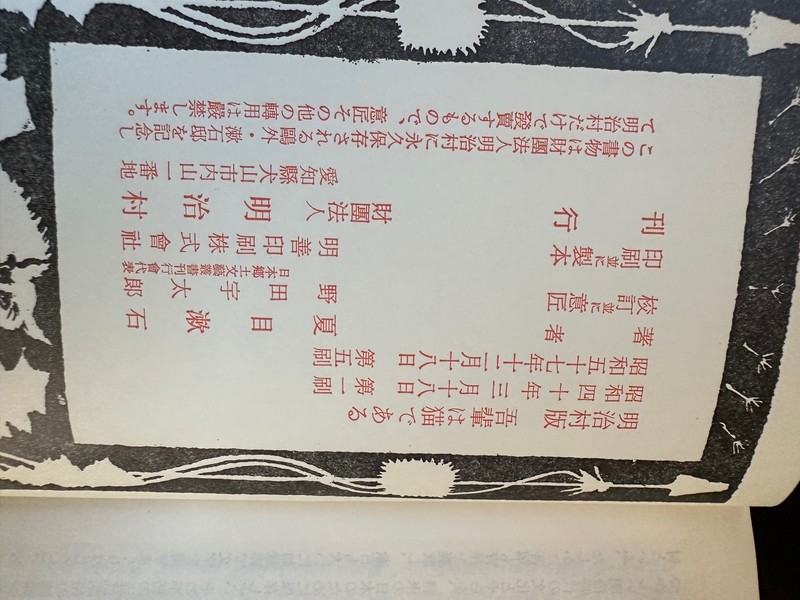 明治村版 吾輩は猫である
昭和四十年三月十八日 第一刷
昭和五十七年十二月十八日 第五刷
著者 夏目漱石
校訂並に意匠 野田宇太郎
日本郷土文藝叢書刊行會代表
印刷並に製本 明善印刷株式會社
刊行 財團法人 明治村
愛知縣犬山市内山一番地
この書物は財團法人明治村に永久保存される鷗外・漱石邸を記念し
て明治村だけで發賣するもので、意匠その他の轉用は嚴禁します。